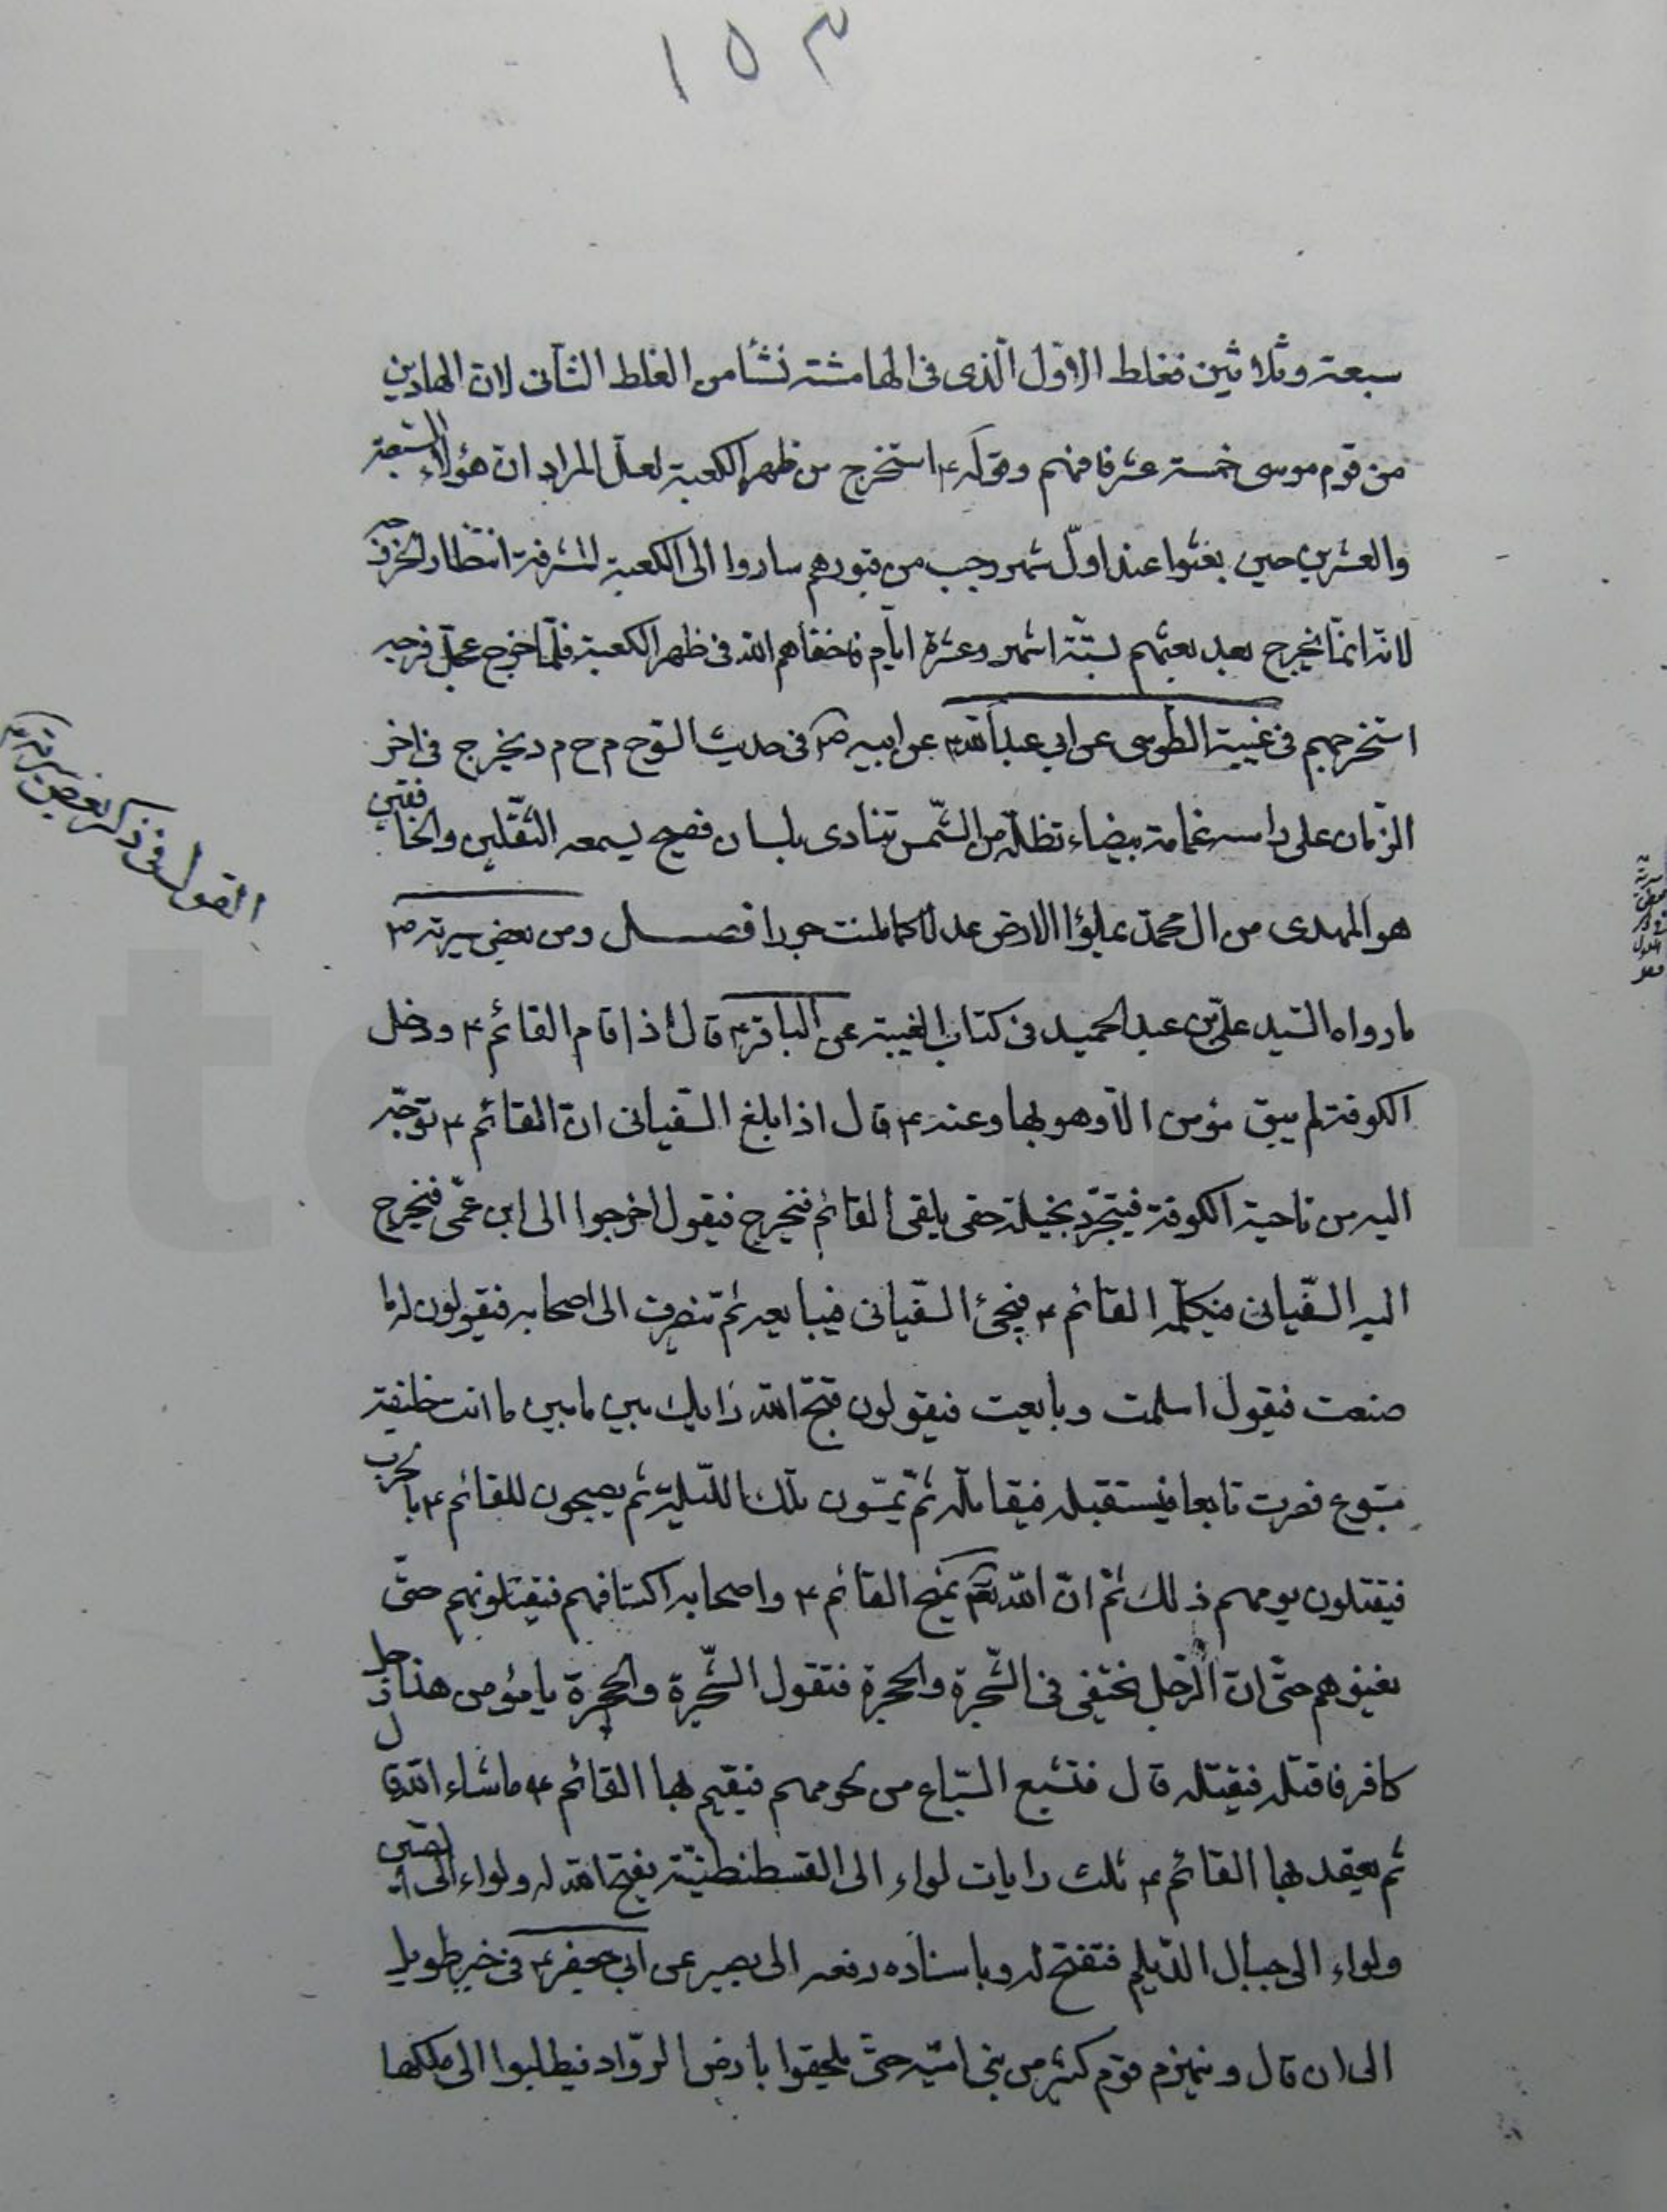 ١٥٣
سبعة وثلاثين فغلط الاوّل الّذى فى الهامشة نشأ من الغلط الثانى لان الهادين
من قوم موسى خمسة عشر فافهم وقوله ٤ استخرج من ظهر الكعبة لعلّ المراد ان هؤلاء السبعة
والعشرين حين بعثوا عند اوّل شهر رجب من قبورهم ساروا الى الكعبة المشرفة انتظارا لخروجه
لانّه انمّا يخرج بعد بعثهم بستّة اشهر وعشرة ايّام فاخفاهم الله فى ظهر الكعبة فلمّا خرج عجّل فرجه
استخرجهم فى غيبة الطّوسى عن ابي عبد الله ٤ عن ابيه ٤ فى حديث اللوح م ح م د يخرج فى اخر
الزّمان على راسه غمامة بيضاء تظلّه من الشّمس تنادى بلسان فصيح يسمعه الثّقلين والخافقين
هو المهدى من ال محمّد يملؤا الارض عدلًا كما ملئت جورا فصل ومن بعض سيرته ٤
ما رواه السّيد علىّ بن عبد الحميد فى كتاب الغيبة عن الباقر ٤ قال اذا قام القائم ٤ ودخل
الكوفة لم يبق مؤمن الّا وهو بها وعنه ٤ قال اذا بلغ السّفيانى انّ القائم ٤ توجّه
اليه من ناحية الكوفة فيتجرّد بخيله حتى يلقى القائم فيخرج فيقول اخرجوا الى ابن عمّى فيخرج
اليه السّفيانى فيكلّمه القائم ٤ فيجئ السّفيانى فيبايعه ثمّ ينصرف الى اصحابه فيقولون له ما
صنعت فيقول اسلمت وبايعت فيقولون قبّح الله رايك بين ما بين ما انت خليفة
متبوع فصرت تابعا فيستقبله فيقاتله ثمّ يمسّون تلك اللّيلة ثم يصبحون للقائم ٤ بالحرب
فيقتلون يومهم ذلك ثمّ انّ الله تعم يمنح القائم ٤ واصحابه اكتافهم فيقتلونهم حتّى
يفنوهم حتّى انّ الرّجل يختفى فى الشّجرة والحجرة فتقول الشّجرة والحجرة يا مؤمن هذا رجل
كافر فاقتله فيقتله قال فتشبع السّباع من لحومهم فيقيم بها القائم ٤ ما شاء الله قا
ثم يعقد بها القائم ٤ ثلث رايات لواء الى القسطنطنيّة يفتح الله له ولواء الى الصّين
ولواء الى جبال الدّيلم فتفتح له وباسناده رفعه الى بصير عن ابي جعفر ٤ فى خبر طويل
الى ان قال وينهزم قوم كثير من بنى اميّه حتّى يلحقوا بارض الروّاد فيطلبوا الى ملكها
القول فى ذكر بعض سيرته